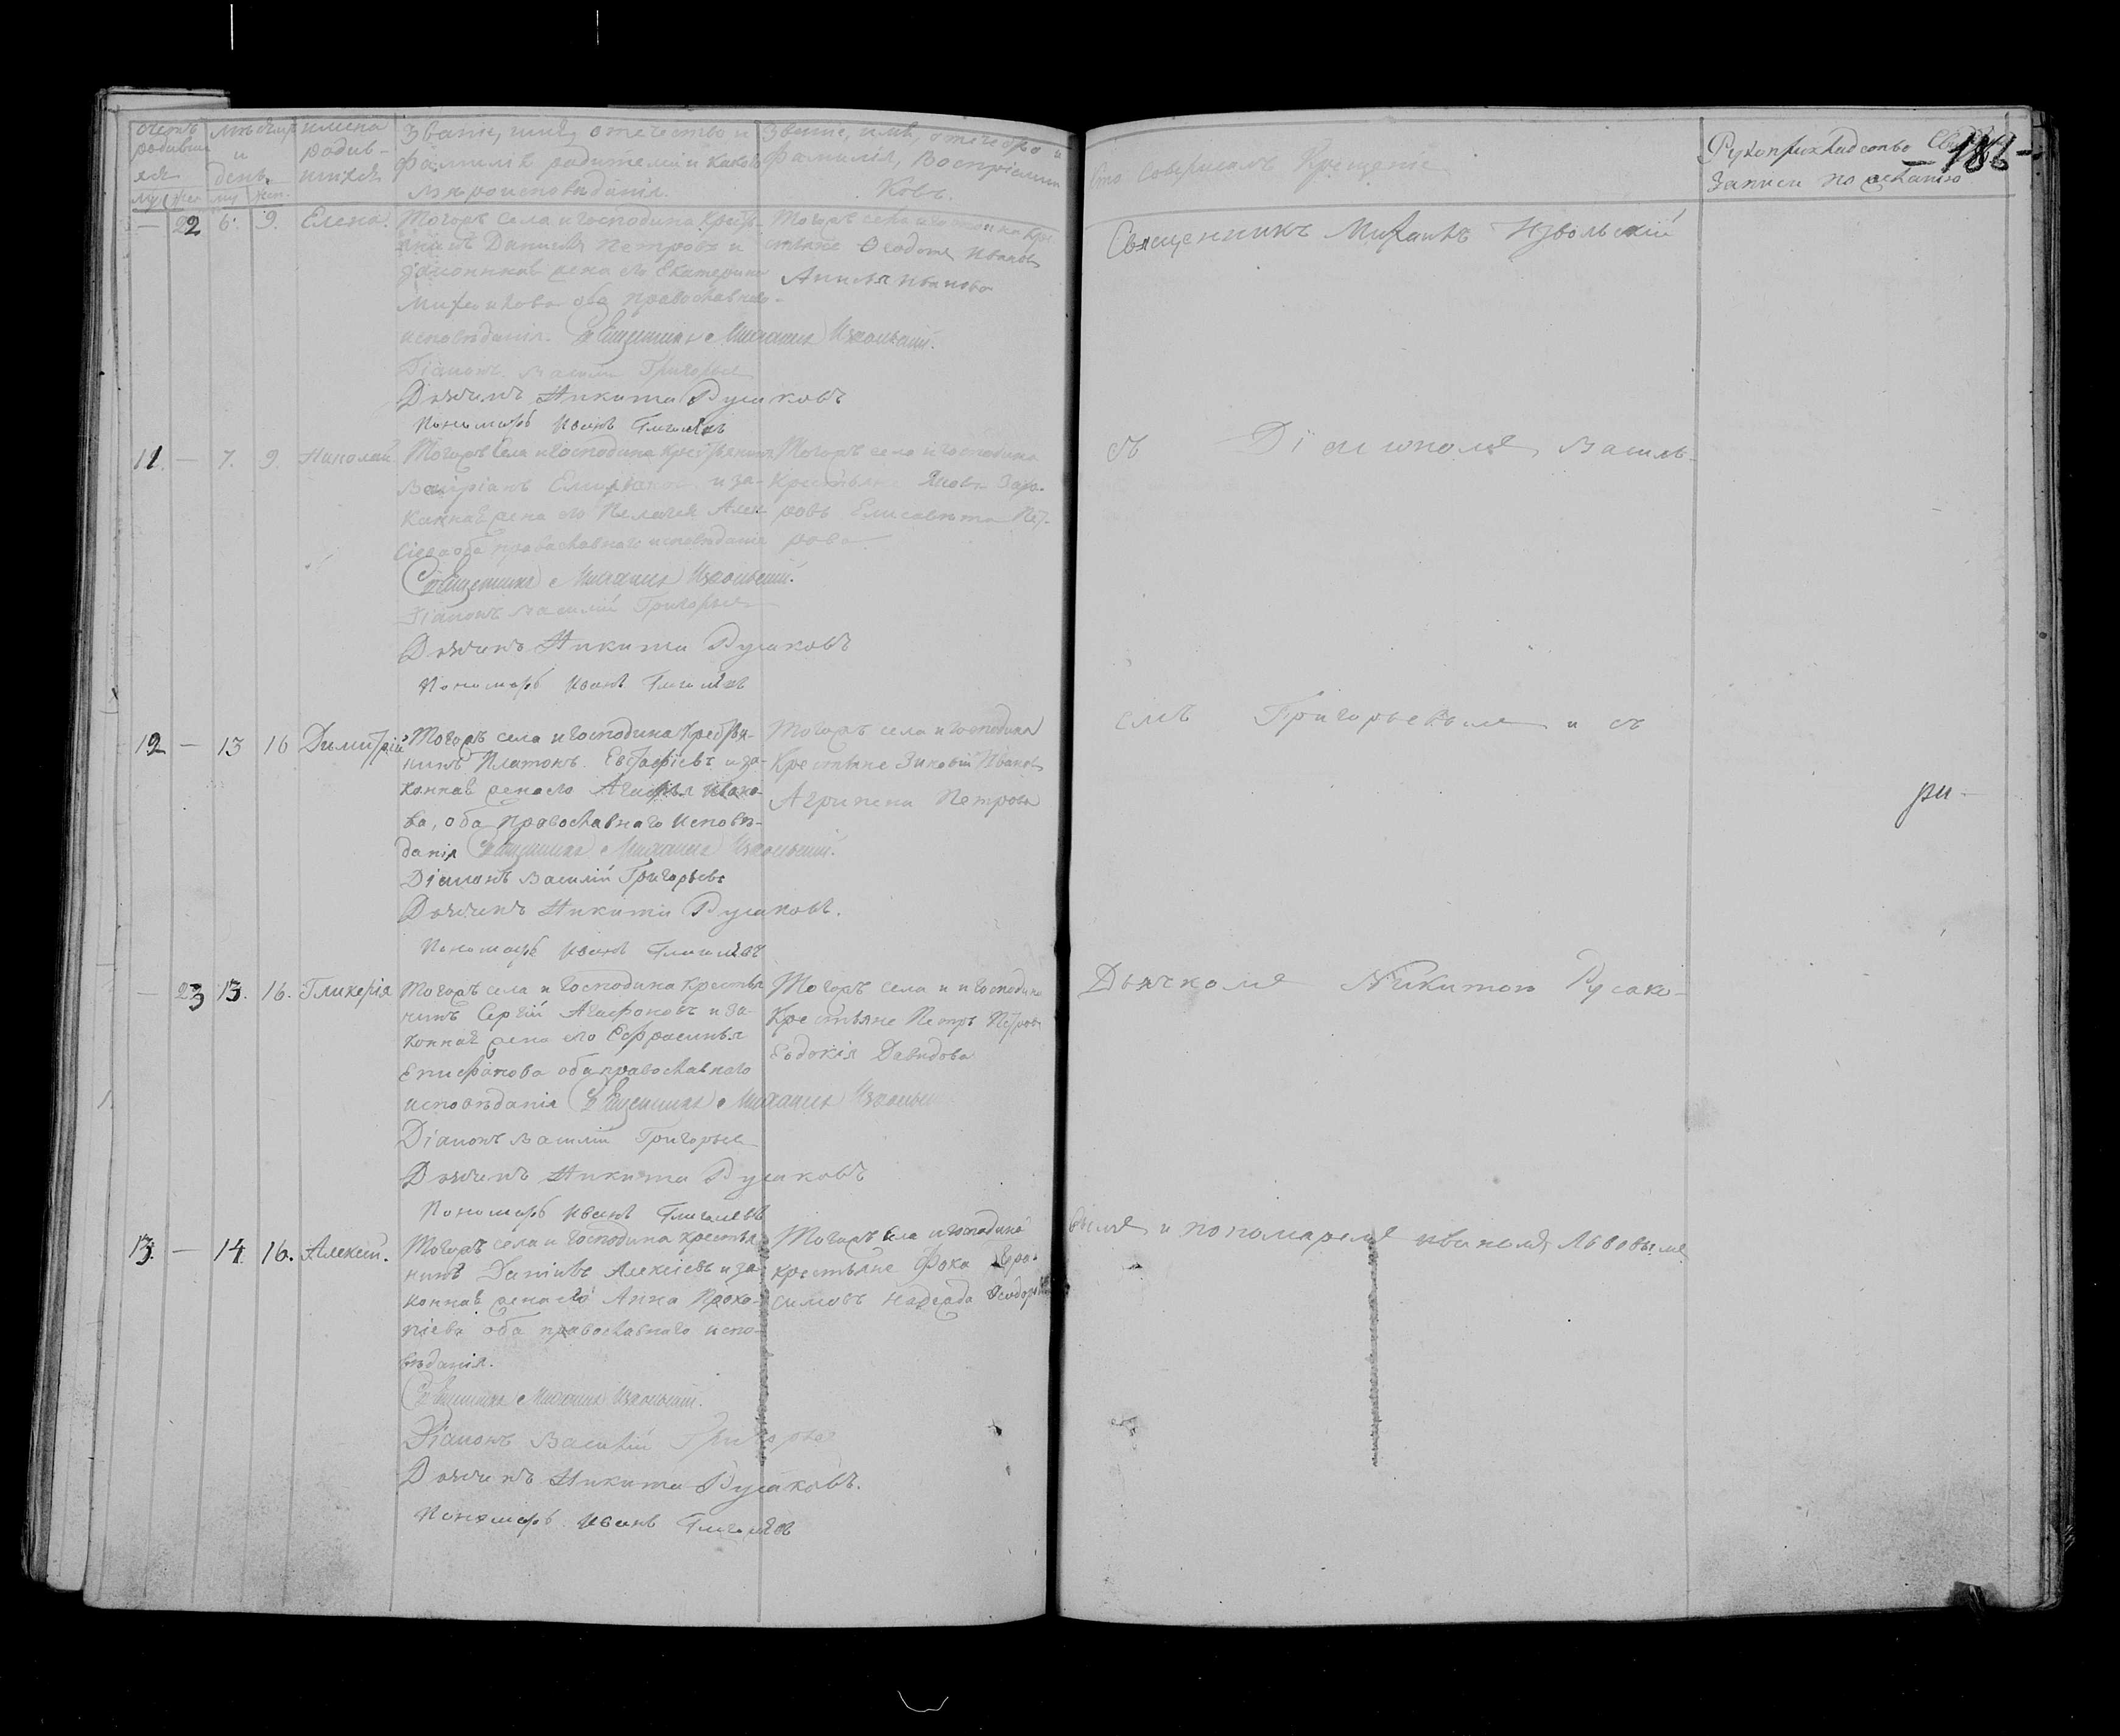 счетъ родивших
ся
муж. жен.
мѣсяцъ
и
день.
имена
родив-
шихся
Званіе, имя, отечество и
фамилія родителей и какова
вѣроисповѣданія.
Званіе, имя, отечество и
фамилія, воспріемни
ковъ.
Кто совершалъ Крещеніе
Рукоприкладство
записи по желанію
— 22 6. 9. Елена.
Тогожъ села и господина Крестья-
нинъ Даниилъ Петровъ и
законная жена его Екатерина
Михайлова оба православнаго
исповѣданія. Священникъ Михаилъ Извольскій.
Діаконъ Василій Григорьевъ
Дьячикъ Никита Русаковъ
Пономарь Иванъ
Тогожъ села и господина Кре-
стьяне Ѳеодотъ Ивановъ
Иванова
11. — 7. 9. Николай
Тогожъ села и господина крестьянинъ
и за-
конная жена его Пелагея Алек-
сіева оба православнаго исповѣданія
Священникъ Михаилъ Извольскій.
Діаконъ Василій Григорьевъ
Дьячикъ Никита Русаковъ
Пономарь Иванъ
Тогожъ села и господина
крестьяне Яковъ Заха-
ровъ Елисавета Пет-
рова
12 — 13 16 Димитрій
Тогожъ села и господина Крестья-
нинъ Платонъ Евстафіевъ и за-
конная жена его Агафья Ивано-
ва, оба Православнаго Исповѣ-
данія Священникъ Михаилъ Извольскій.
Діаконъ Василій Григорьевъ
Дьячикъ Никита Русаковъ.
Пономарь Иванъ
Тогожъ села и господина
Крестьяне Зиновій Ивановъ
Агрипена Петрова
— 23 13. 16. Гликерія
Тогожъ села и господина крестья
нинъ Сергій Агафоновъ и за-
конная жена его Ефросинья
Епифанова оба православнаго
исповѣданія Священникъ Михаилъ Извольскій
Діаконъ Василій Григорьевъ
Дьячикъ Никита Русаковъ
Пономарь Иванъ
Тогожъ села и господина
Крестьяне Петръ Петровъ
Евдокія Давидова
13. — 14 16. Алексій.
Тогожъ села и господина крестья
нинъ Даніилъ Алексіевъ и за-
конная жена его Анна Проко-
піева оба православнаго испо-
вѣданія.
Священникъ Михаилъ Извольскій.
Діаконъ Василій Григорьевъ
Дьячикъ Никита Русаковъ.
Пономарь Иванъ
Тогожъ села и господина
крестьяне Фока Гера-
симовъ Надежда Ѳеодорова
Священникъ Михаилъ Извольскій
съ Діакономъ Василь-
емъ Григорьевымъ и съ
ри-
Дьячкомъ Никитою Русако-
вымъ и пономаремъ Иваномъ Львовымъ